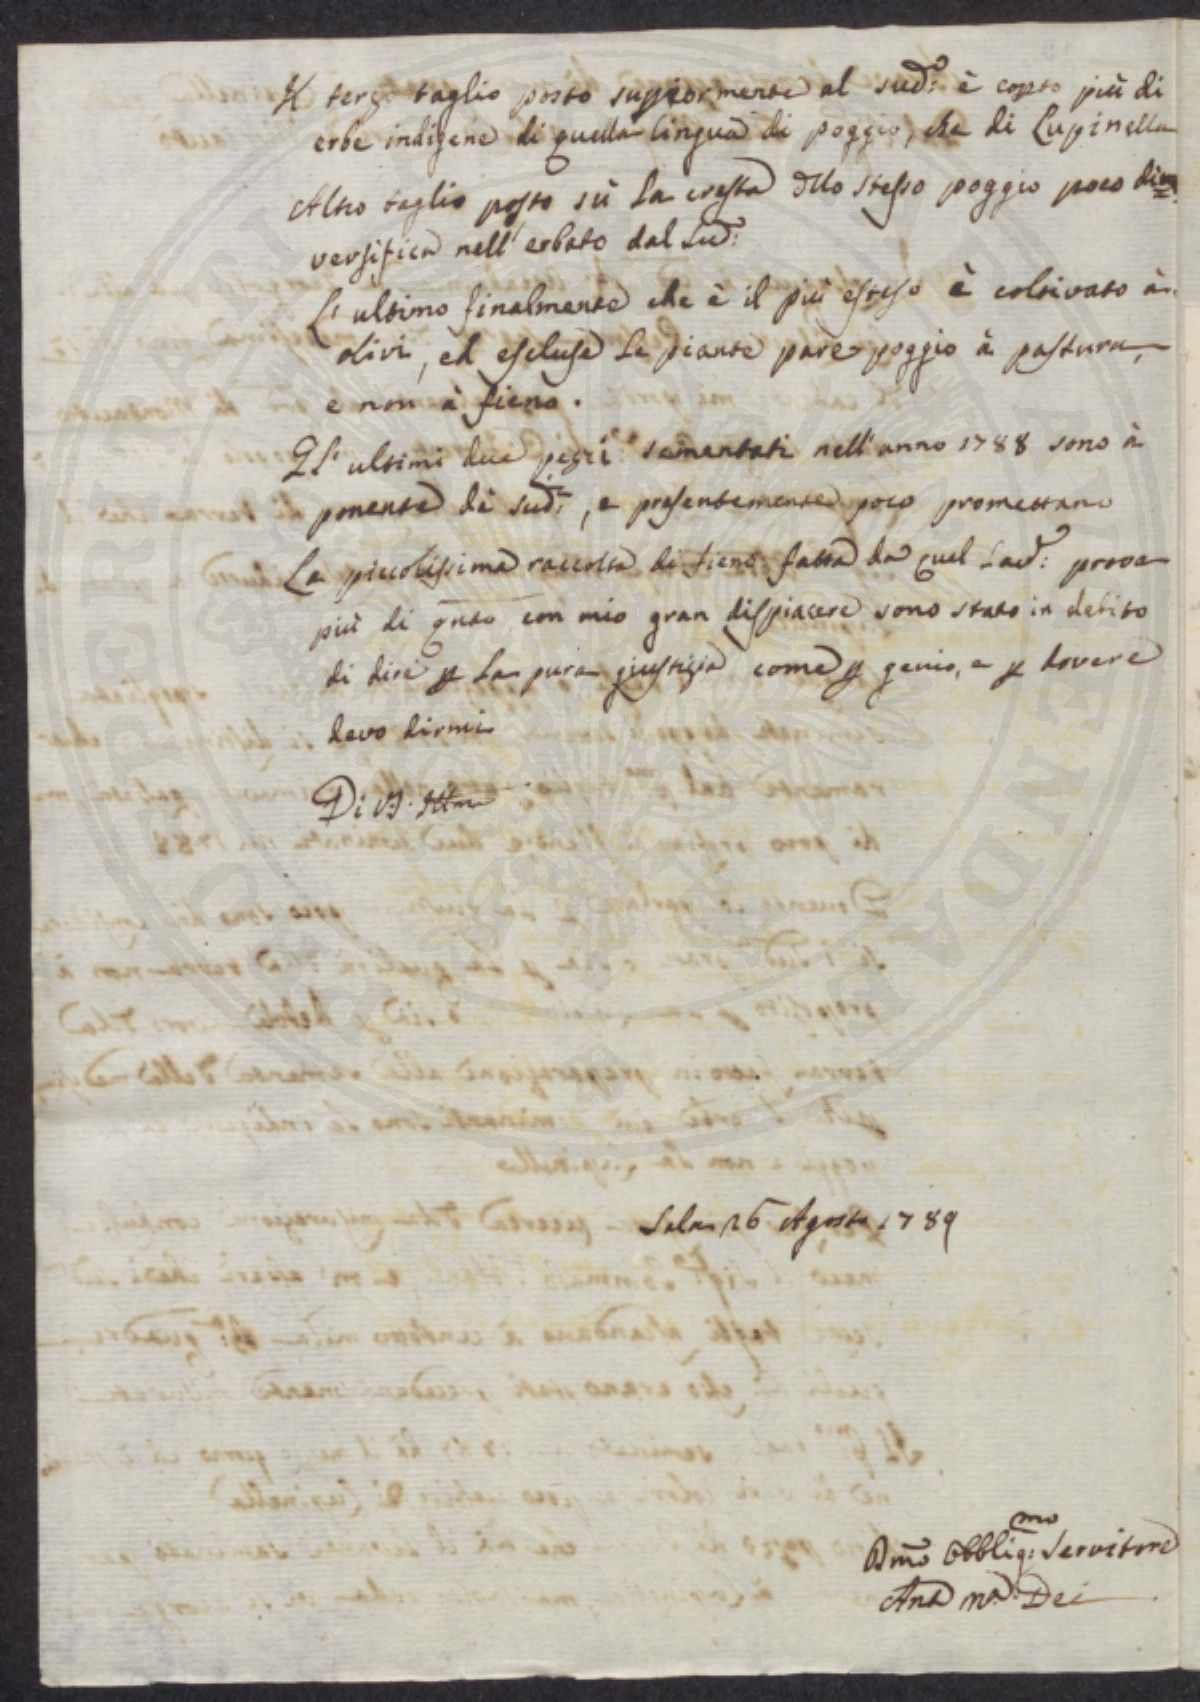 Il terzo taglio posto superiormente al sud: è copto più di
erbe indigene di quella lingua di poggio, che di Lupinella
Altro taglio posto sù la cresta dllo stesso poggio poco di
versifica nell'erbato dal Sud:
L'ultimo finalmente che è il più esteso è coltivato à
olivi, ed escluse le piante pare poggio à pastura,
e non à fieno.
Gl'ultimi due pezzi sementati nell'anno 1788 sono à
ponente dè sud:i, e presentemente poco promettano
La piccolissima raccolta di fieno fatta da quel Lad: prova
più di qnto con mio gran dispiacere sono stato in debito
di dire p la pura giustizia come p genio, e p dovere
devo dirmi
Di V. Illma
Sala 26 Agosto 1789
Dmo Obblig:mo Servitore
Anto Ma Dei